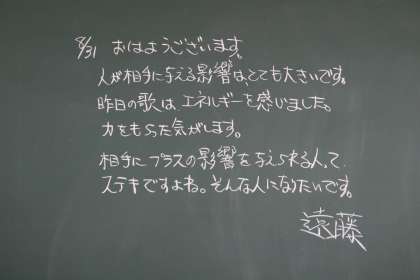 8/31 おはようございます。
人が相手に与える影響は、とても大きいです。
昨日の歌は、エネルギーを感じました。
力をもらった気がします。
相手にプラスの影響を与えられる人、て
ステキですよね。そんな人になりたいです。
遠藤